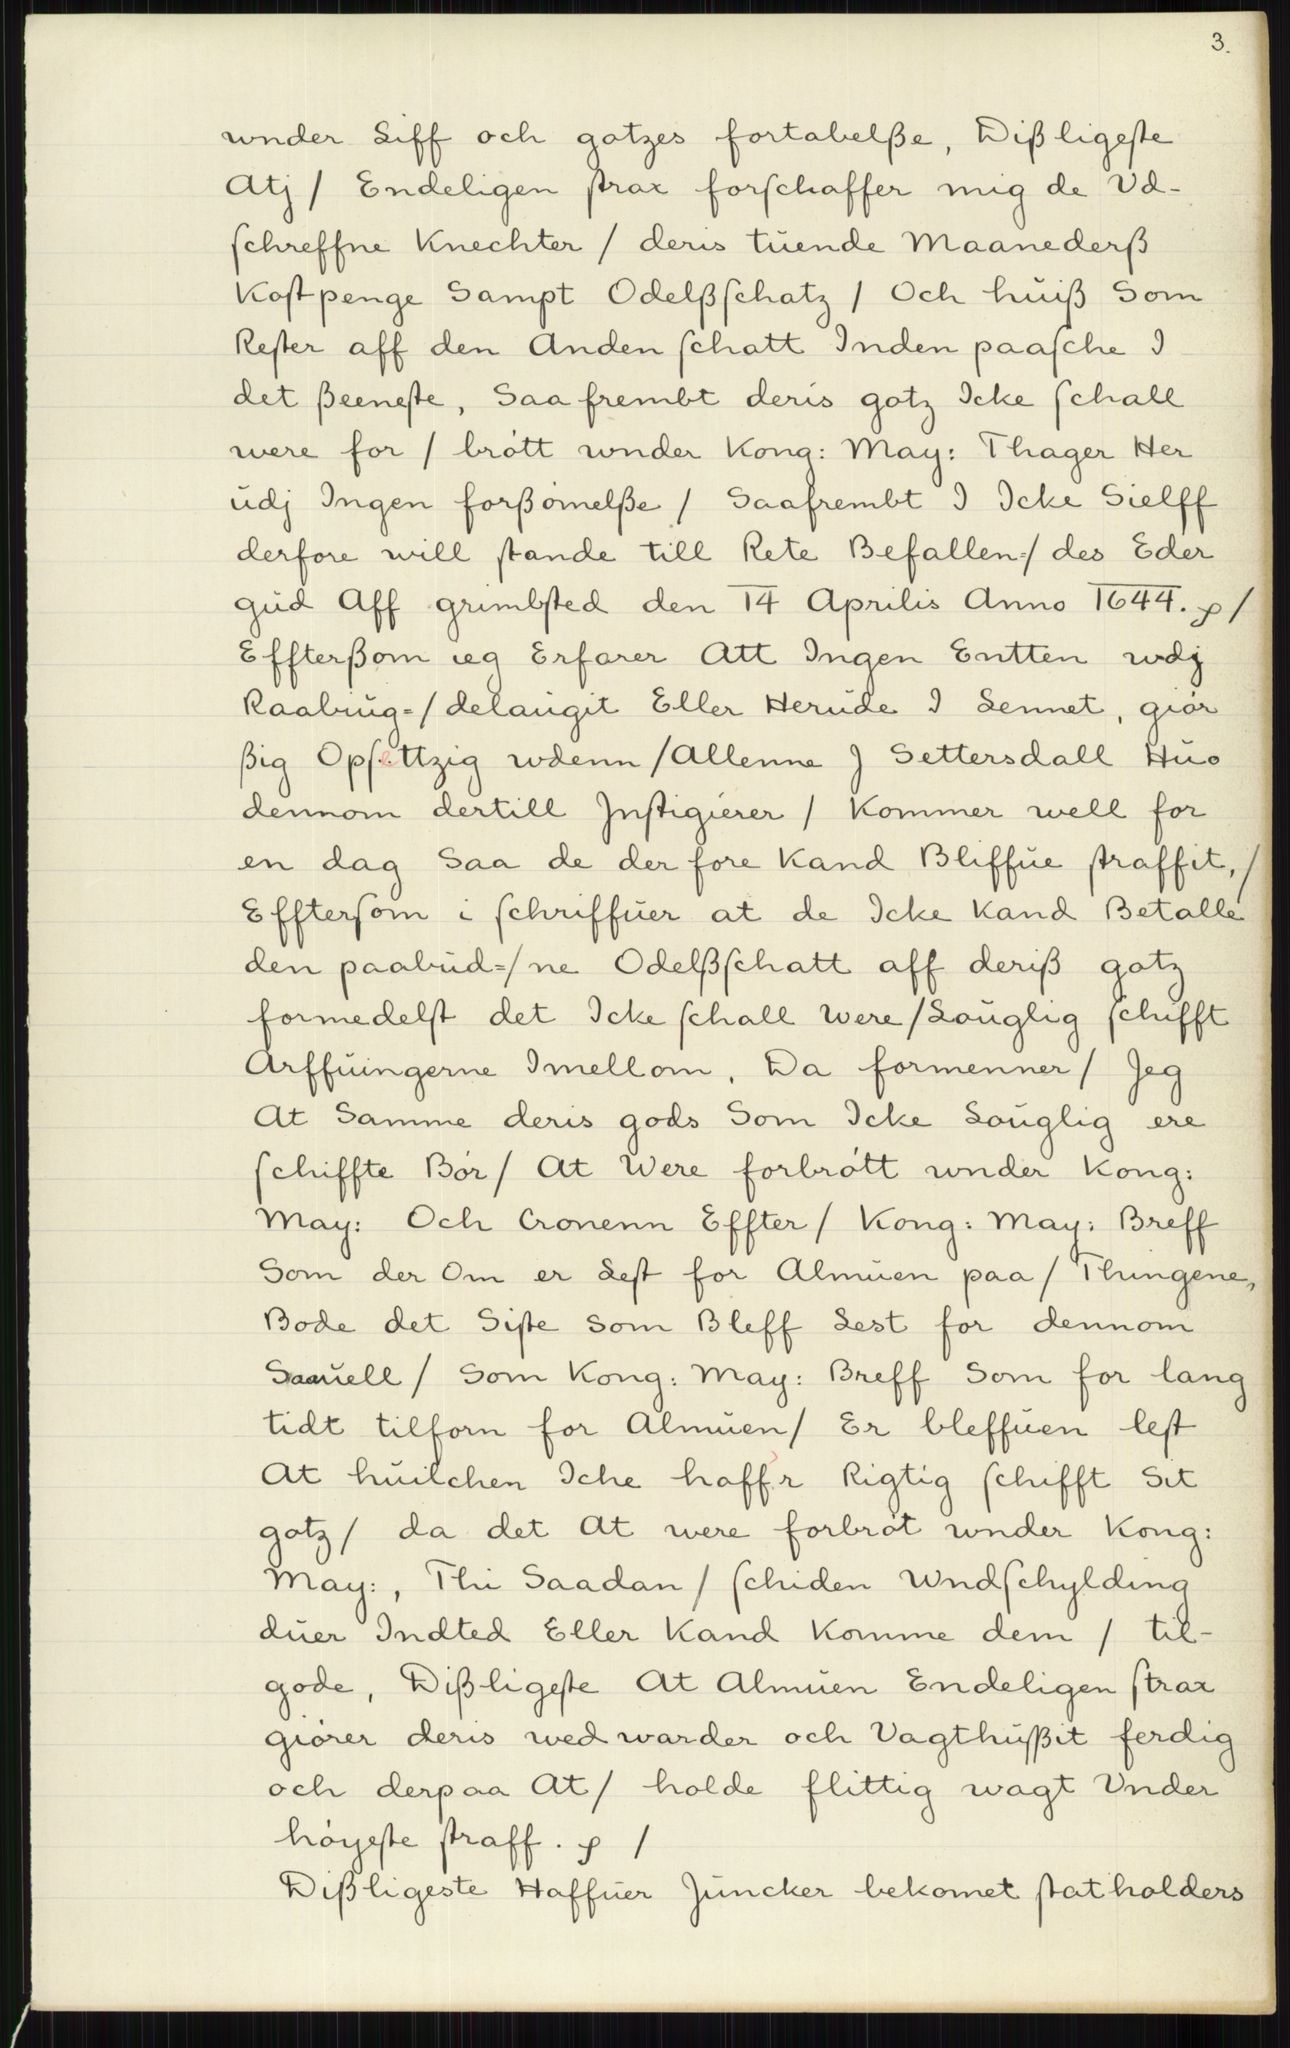 3.
wnder Liff och gotzes fortabelße, Dißligeste
Atj / Endeligen strax forschaffer mig de Vd-
schreffne Knechter / deris tüende Maanederß
Kostpenge Sampt Odelßschatz / Och huiß Som
Rester aff den Anden schatt Inden paasche I
det ßeeneste, Saafrembt deris gotz Icke schall
were for / brótt wnder Kong: May: Thager Her
üdj Ingen forßómelße / Saafrembt I Icke Sielff
derfore will stande till Rete Befallen=/ des Eder
güd Aff grimbsted den 14 Aprilis Anno 1644. p /
Effterßom ieg Erfarer Att Ingen Entten wdj
Raabüg=/delaugit Eller Herüde I Lennet, giór
ßig Opsettzig wdenn / Allenne J Settersdall Hüo
dennom dertill Jnstigierer / Kommer well for
en dag Saa de der fore Kand Bliffüe straffit, /
Efftersom i schriffüer at de Icke Kand Betalle
den paabüd=/ne Odelßschatt aff deriß gotz
formedelst det Icke schall Were / Loüglig schifft
Arffüingerne Imellom, Da formenner / Jeg
At Samme deris gods Som Icke Loüglig ere
schiffte Bór / At Were forbrótt wnder Kong:
May: Och Cronenn Effter / Kong: May: Breff
Som der Om er Lest for Almüen paa / Thingene,
Bode det Siste Som Bleff Lest for dennom
Saauell / Som Kong: May: Breff Som for lang
tidt tilforn for Almüen / Er bleffüen lest
At hüilchen Iche haffr Rigtig schifft Sit
gotz / da det At were forbrót wnder Kong:
May:, Thi Saadan / schiden Wndschylding
düer Indted Eller Kand Komme dem / til-
gode, Dißligeste At Almüen Endeligen strax
giórer deris wed warder och Vagthüßit ferdig
och derpaa At / holde flittig wagt Vnder
hóyeste straff. p /
Dißligeste Haffüer Jüncker bekomet statholders